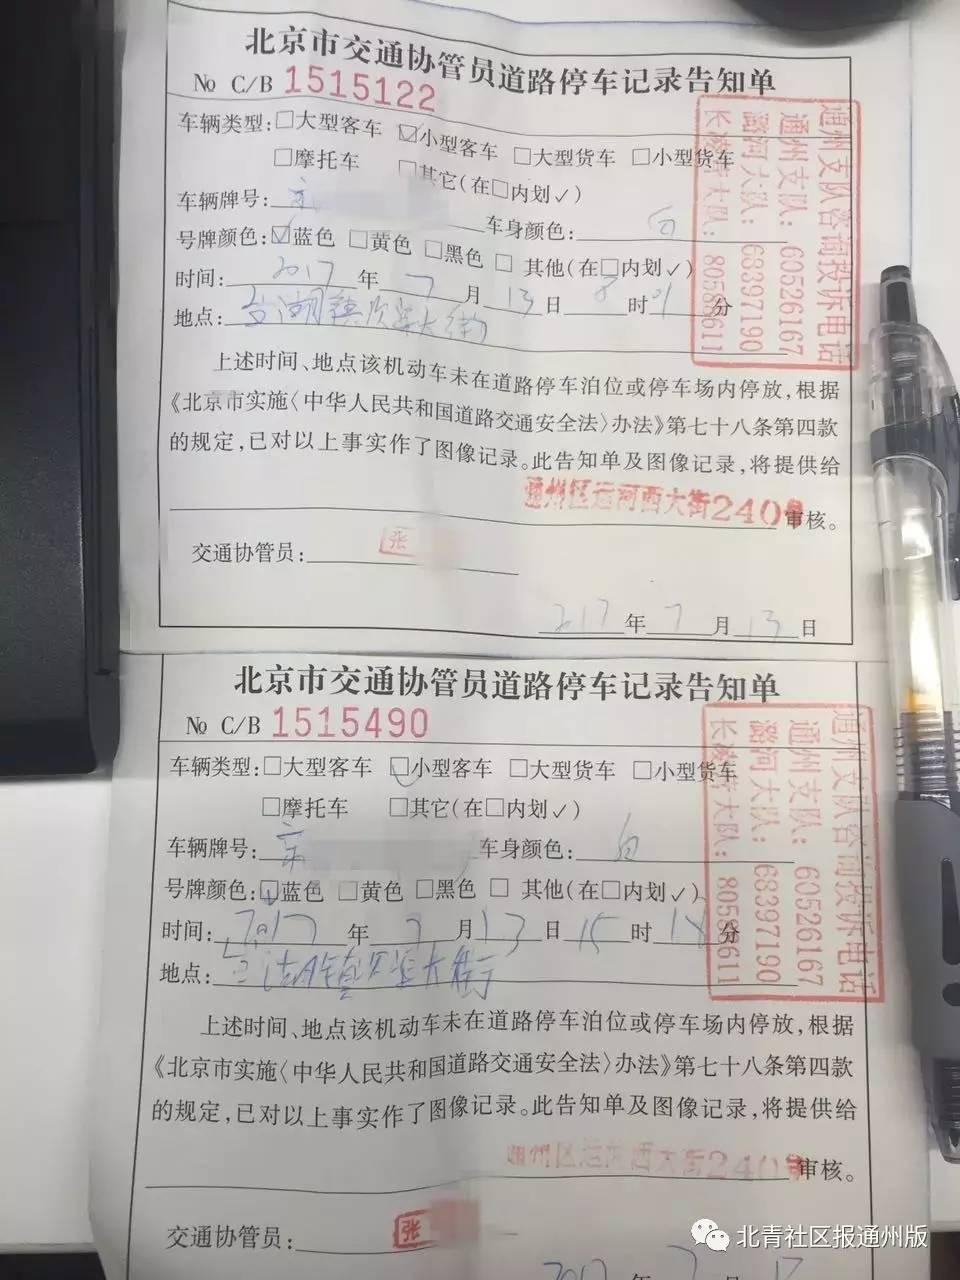 北京市交通协管员道路停车记录告知单
№ C/B 1515122
车辆类型:□大型客车 ☑小型客车 □大型货车 □小型货车
□摩托车 □其它(在□内划✓)
车辆牌号: 京
车身颜色: 白
号牌颜色:☑蓝色 □黄色 □黑色 □ 其他(在□内划✓)
时间: 2017 年 7 月 13 日 8 时 01 分
地点: 台湖镇次渠大街
上述时间、地点该机动车未在道路停车泊位或停车场内停放,根据
《北京市实施〈中华人民共和国道路交通安全法〉办法》第七十八条第四款
的规定,已对以上事实作了图像记录。此告知单及图像记录,将提供给
通州区运河西大街240号 审核。
交通协管员: 张
2017 年 7 月 13 日
通州支队咨询投诉电话
通州支队: 60526167
潞河大队: 68397190
大队: 80583611
北京市交通协管员道路停车记录告知单
№ C/B 1515490
车辆类型:□大型客车 ☑小型客车 □大型货车 □小型货车
□摩托车 □其它(在□内划✓)
车辆牌号: 京
车身颜色: 白
号牌颜色:☑蓝色 □黄色 □黑色 □ 其他(在□内划✓)
时间: 2017 年 7 月 13 日 15 时 18 分
地点: 台湖镇次渠大街
上述时间、地点该机动车未在道路停车泊位或停车场内停放,根据
《北京市实施〈中华人民共和国道路交通安全法〉办法》第七十八条第四款
的规定,已对以上事实作了图像记录。此告知单及图像记录,将提供给
通州区运河西大街240号 审核。
交通协管员: 张
2017 年 7 月 13
通州支队咨询投诉电话
通州支队: 60526167
潞河大队: 68397190
大队: 80583611
北青社区报通州版